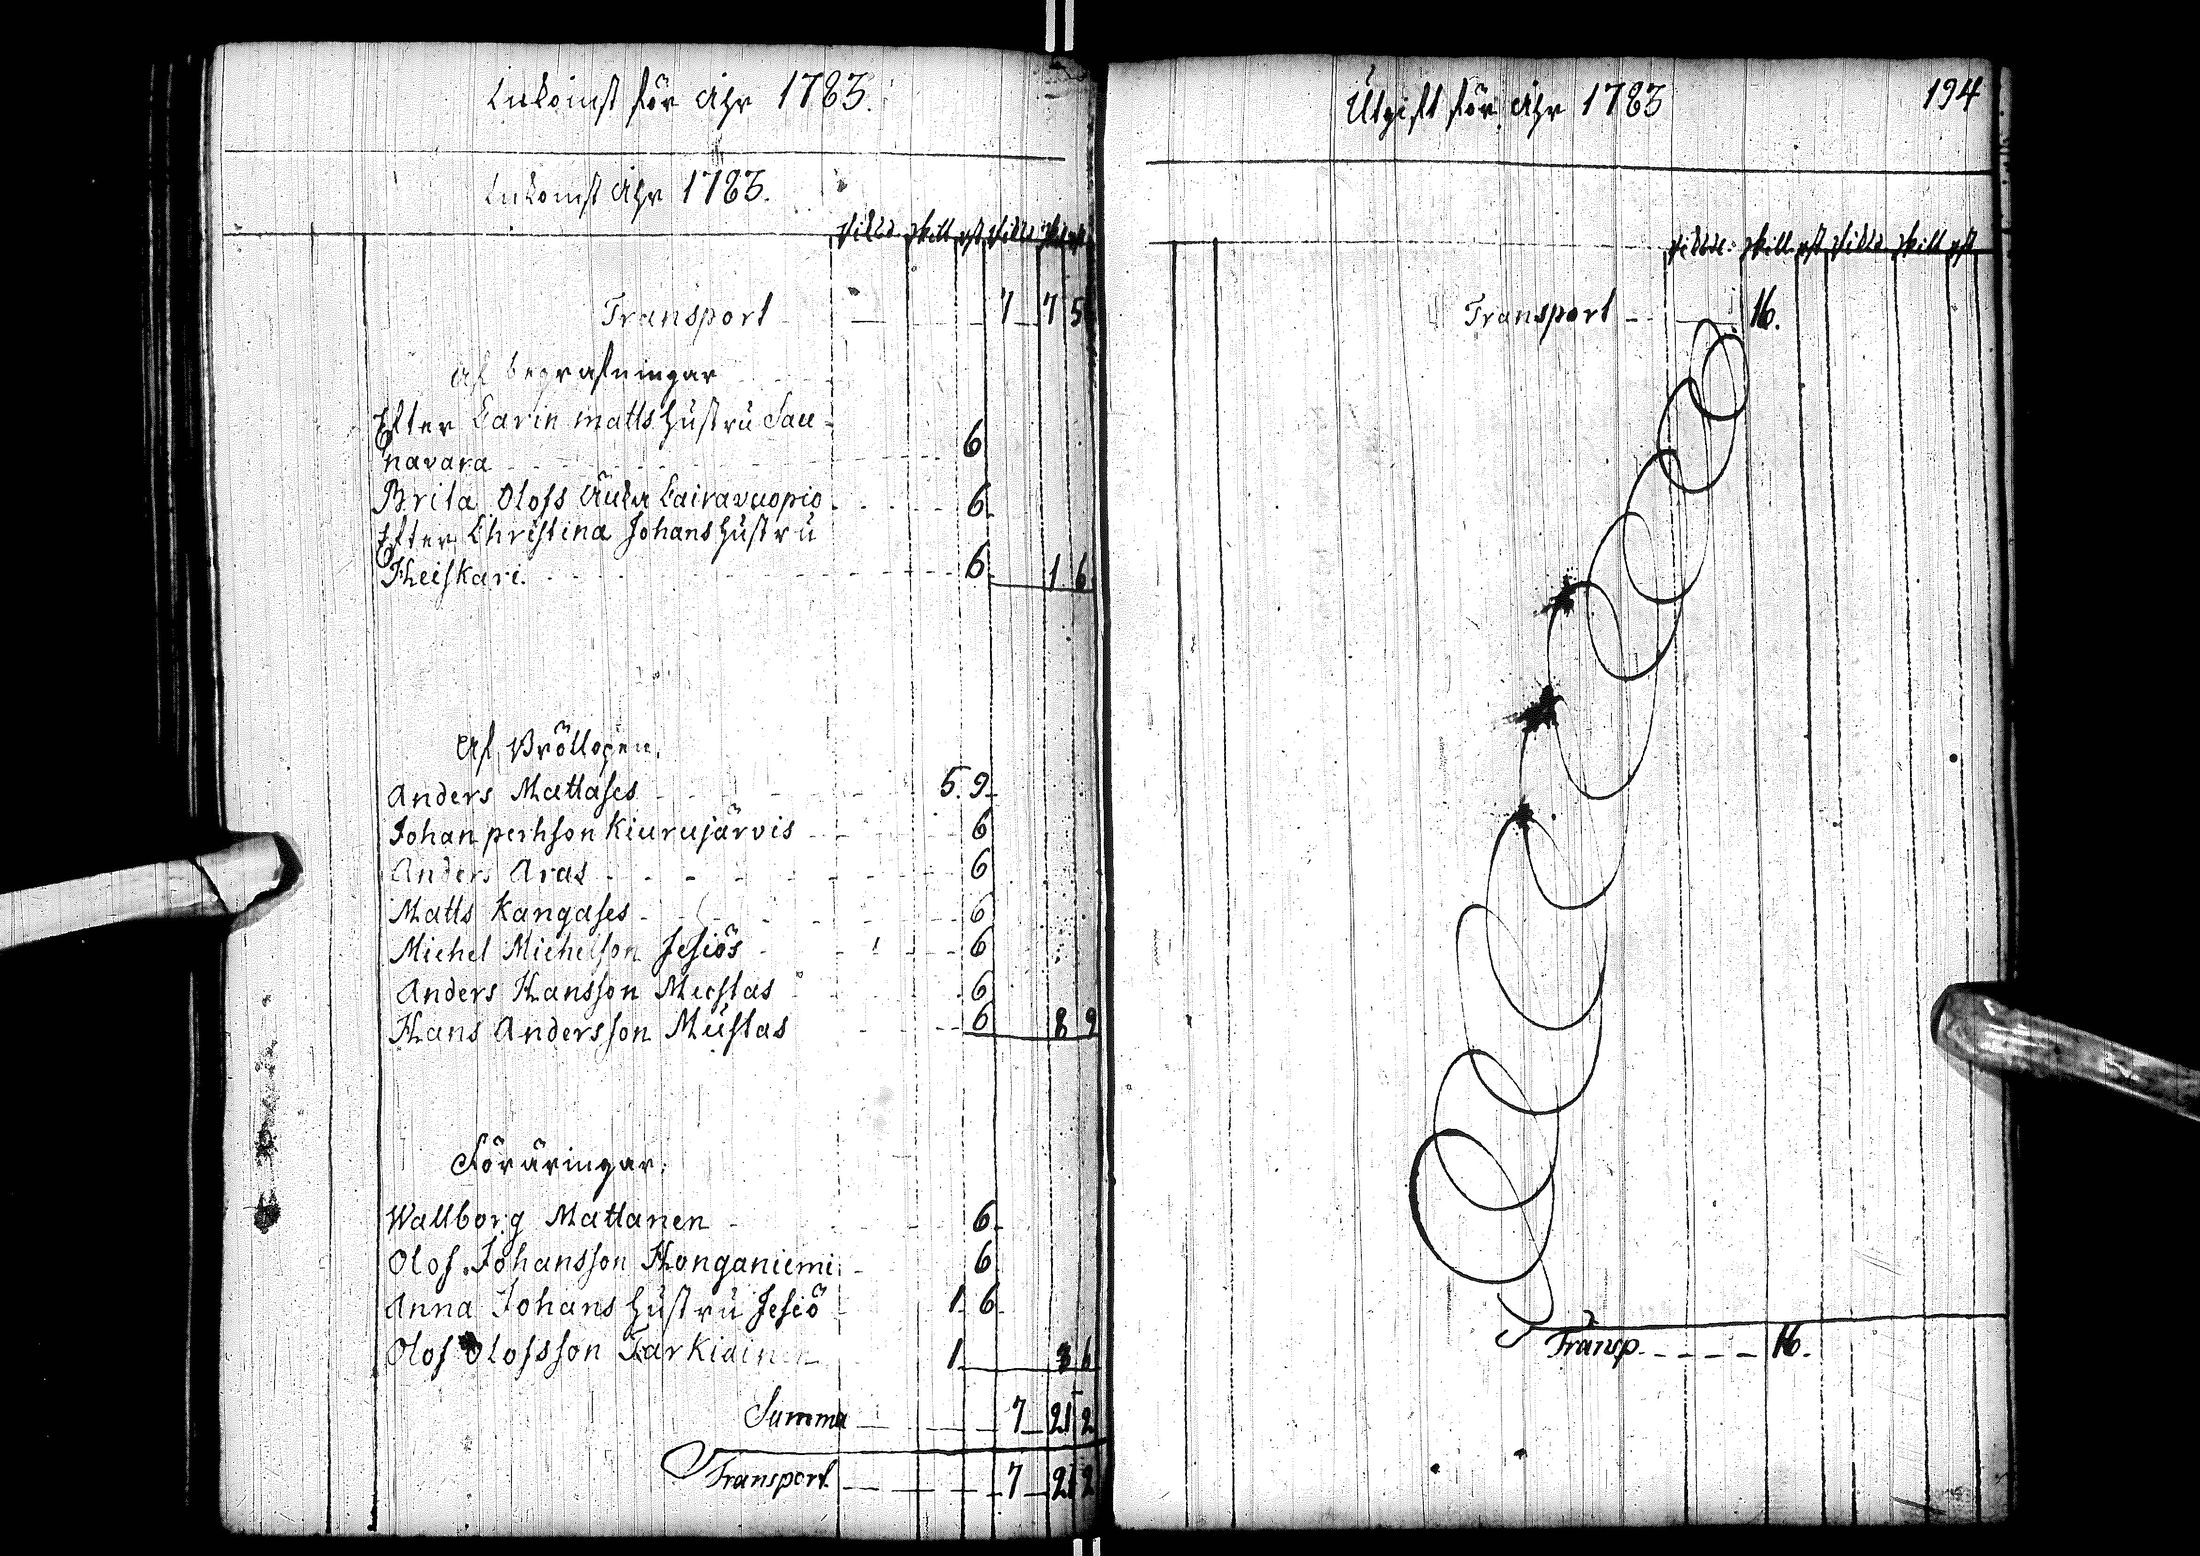 Inkomst för Åhr 1783.
Inkomst Åhr 1783.
Riksd. skill. rst Riksd. skill rst
Transport 7 7 5
Af begrafningar
Efter Carin Matts hustru Sau-
navara 6
Brita Olofs Änka Cairavuopio 6
Efter Christina Johans hustru
Heiskari. 6 1 6
Af Bröllopen.
Anders Mattases 5. 9
Johan perhson Kiurujärvis 6
Anders Aras 6
Matts Kangases 6
Michel Michelson Jesiös 6
Anders Hansson Mustas 6
Hans Andersson Mustas 6 8 9
Föräringar.
Wallborg Mattanen 6.
Olof Johansson Honganiemi 6
Anna Johans hustru Jesiö 1. 6
Olof Olofsson Tarkiainen 1. 3 6
Summa 7 21 2
Transport 7 21 2
Utgift för Åhr 1783
194
Riksd. skill. rst Riksd. skill rst
Transport 16.
Transp. 16.